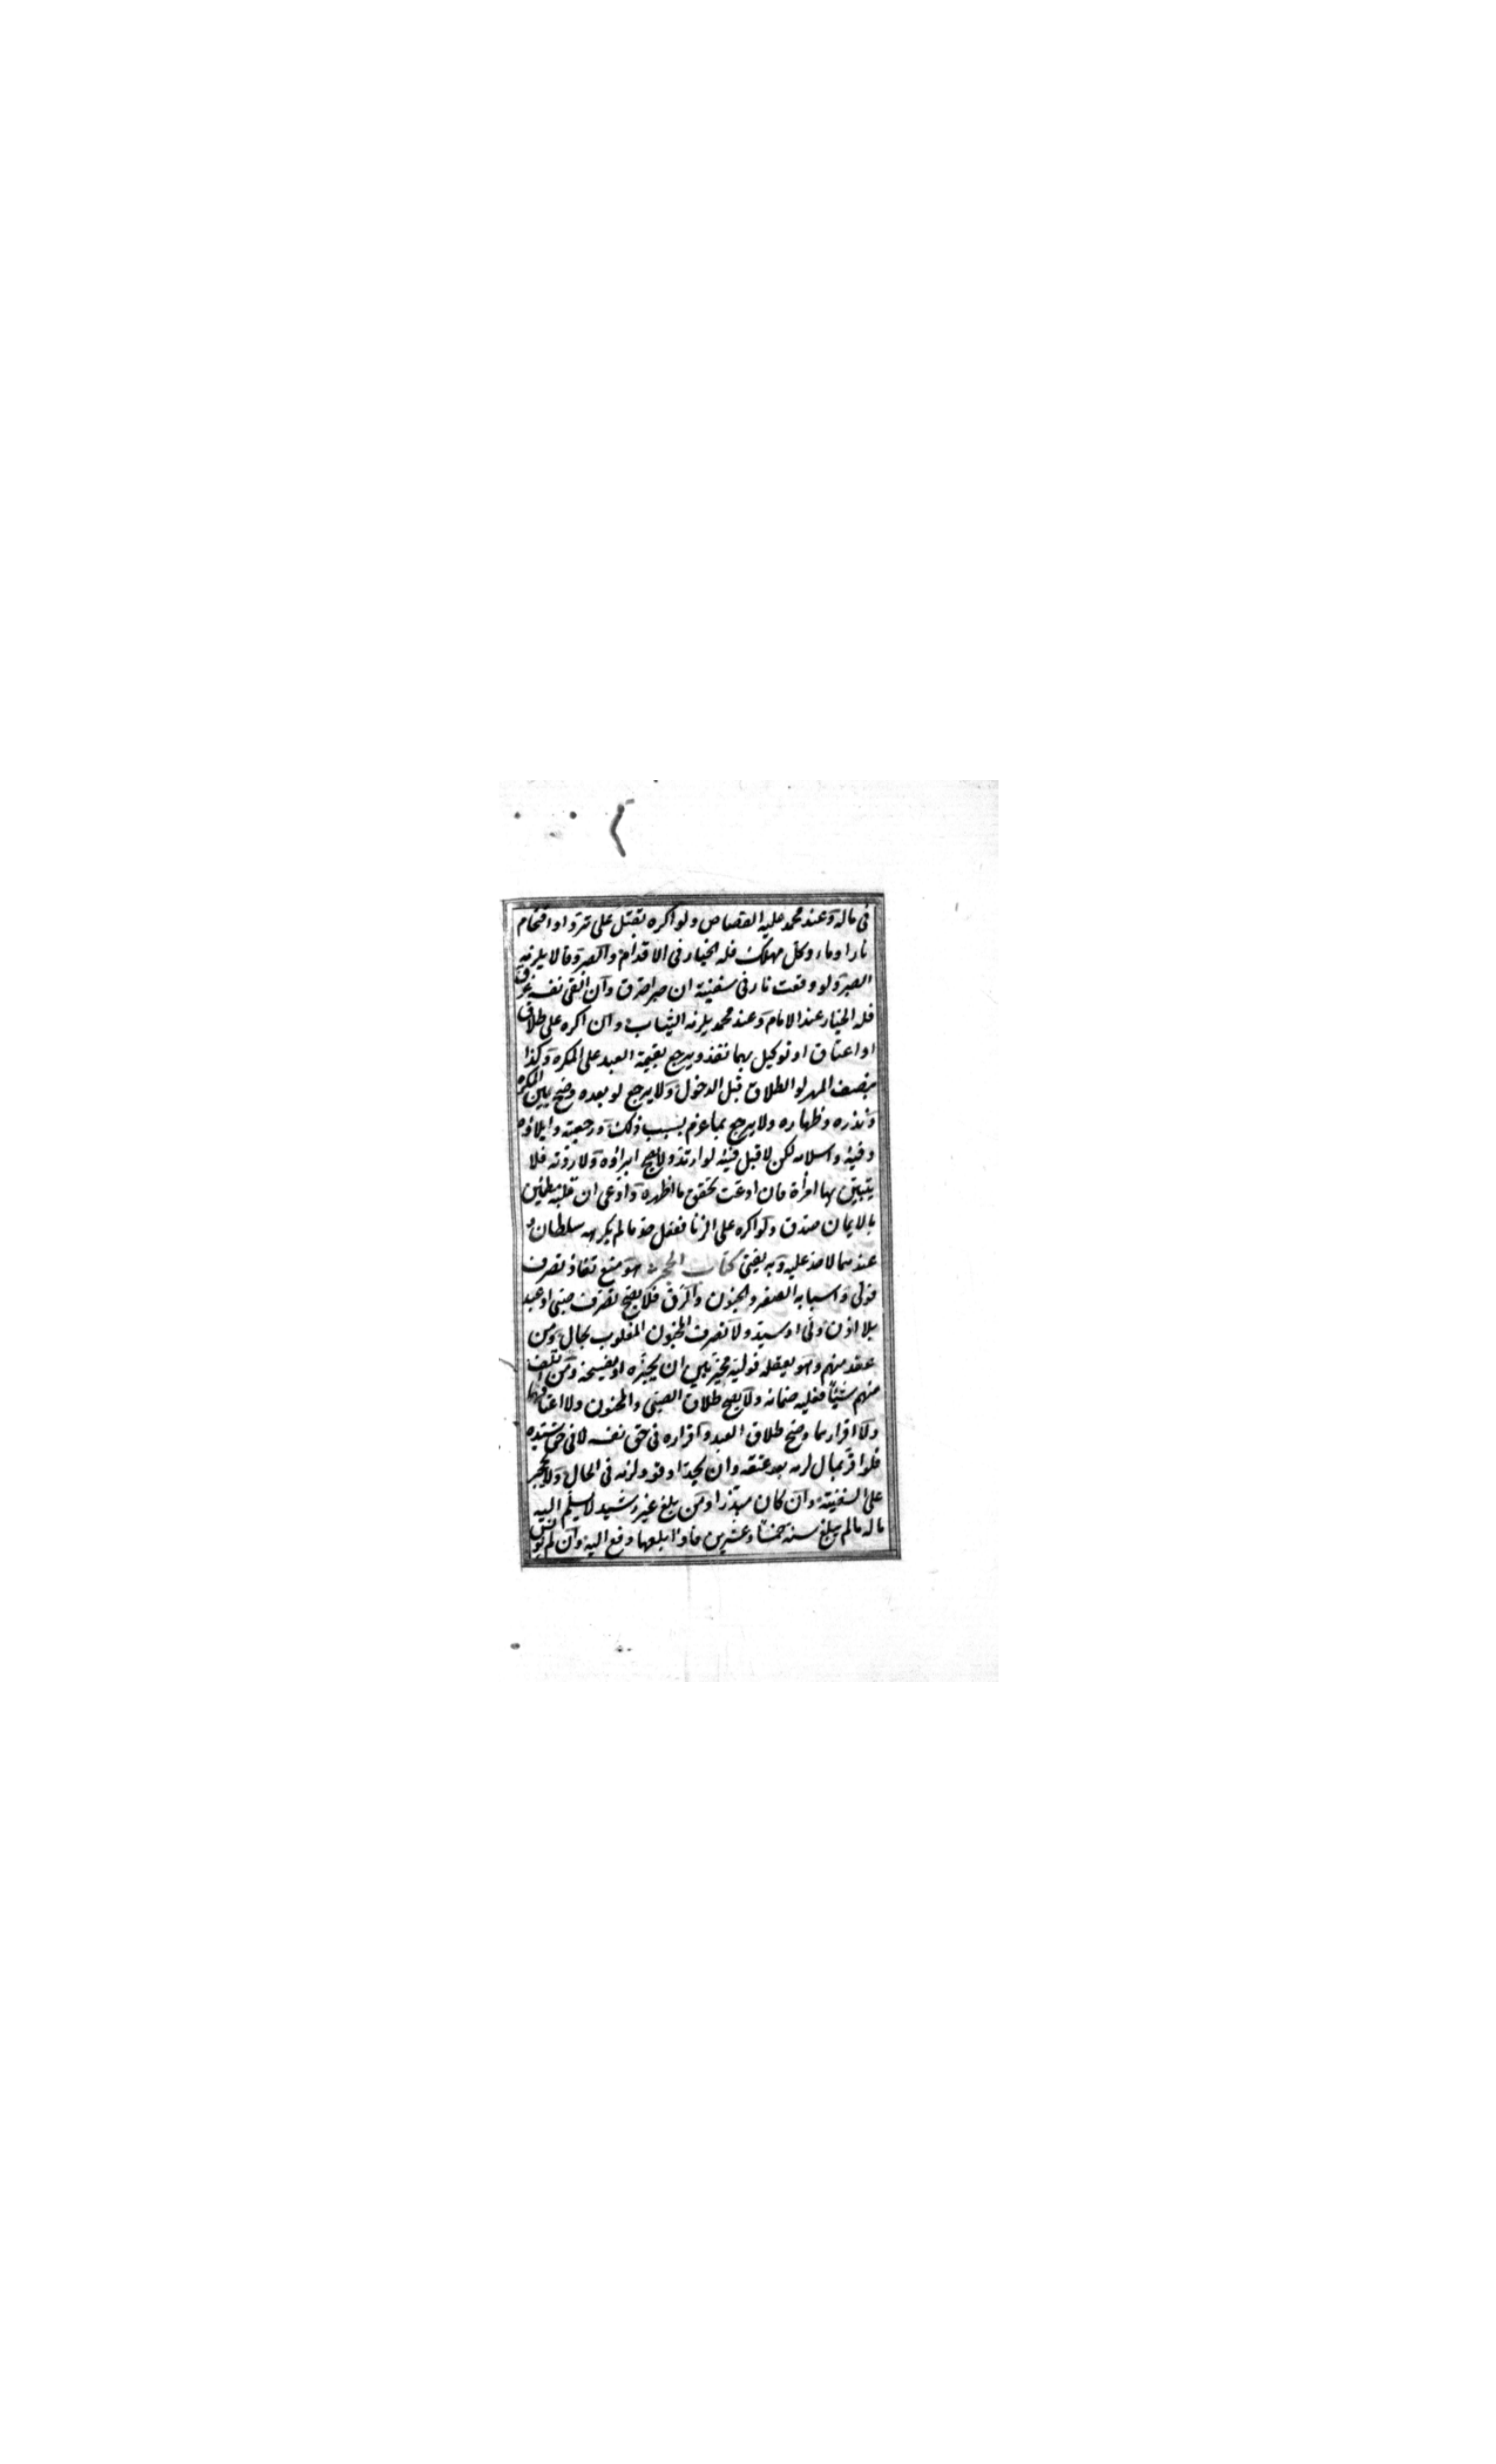 في ماله وعند محمد عليه القصاص ولو اكره بقتل على ترد او اقتحام
نار او ماء وكل مهلك فله الخيار في الاقدام والصبر وقالا يلزمه
الصبر ولو وقعت نار في سفينة ان صبر احترق وان القى نفسه غرق
فله الخيار عند الامام وعند محمد يلزمه الثبات وان اكره على طلاق
او اعتاق او توكيل بهما نفذ ويرجع بقيمة العبد على المكره وكذا
بنصف المهر لو الطلاق قبل الدخول ولا يرجع لو بعده وصح يمين المكره
ونذره وظهاره ولا يرجع بما غرم بسبب ذلك ورجعته وايلاؤه
وفيئه واسلامه لكن لا قتل فيه لو ارتد ولا يصح ابراؤه ولا ردته فلا
تبين بها امرأة فان ادعت تحقق ما اظهره وادعى ان قلبه مطمئن
بالايمان صدق ولو اكره على الزنا ففعل حد ما لم يكرهه سلطان و
عندهما لا حد عليه وبه يفتى كتاب الحجر هو منع نفاذ تصرف
قولي واسبابه الصغر والجنون والرق فلا يصح تصرف صبي او عبد
بلا اذن ولي او سيد ولا تصرف المجنون المغلوب بحال ومن
عقد منهم وهو يعقله فوليه مخير بين ان يجيزه او يفسخه ومن اتلف
منهم شيئا فعليه ضمانه ولا يصح طلاق الصبي والمجنون ولا اعتاقهما
ولا اقرارهما وصح طلاق العبد واقراره في حق نفسه لا في حق سيده
فلو اقر بمال لزمه بعد عتقه وان بحد او قود لزمه في الحال ولا يحجر
على السفيه وان كان مبذرا ومن بلغ غير رشيد لا يسلم اليه
ماله ما لم يبلغ سنه خمسا وعشرين فاذا بلغها دفع اليه وان لم يونس